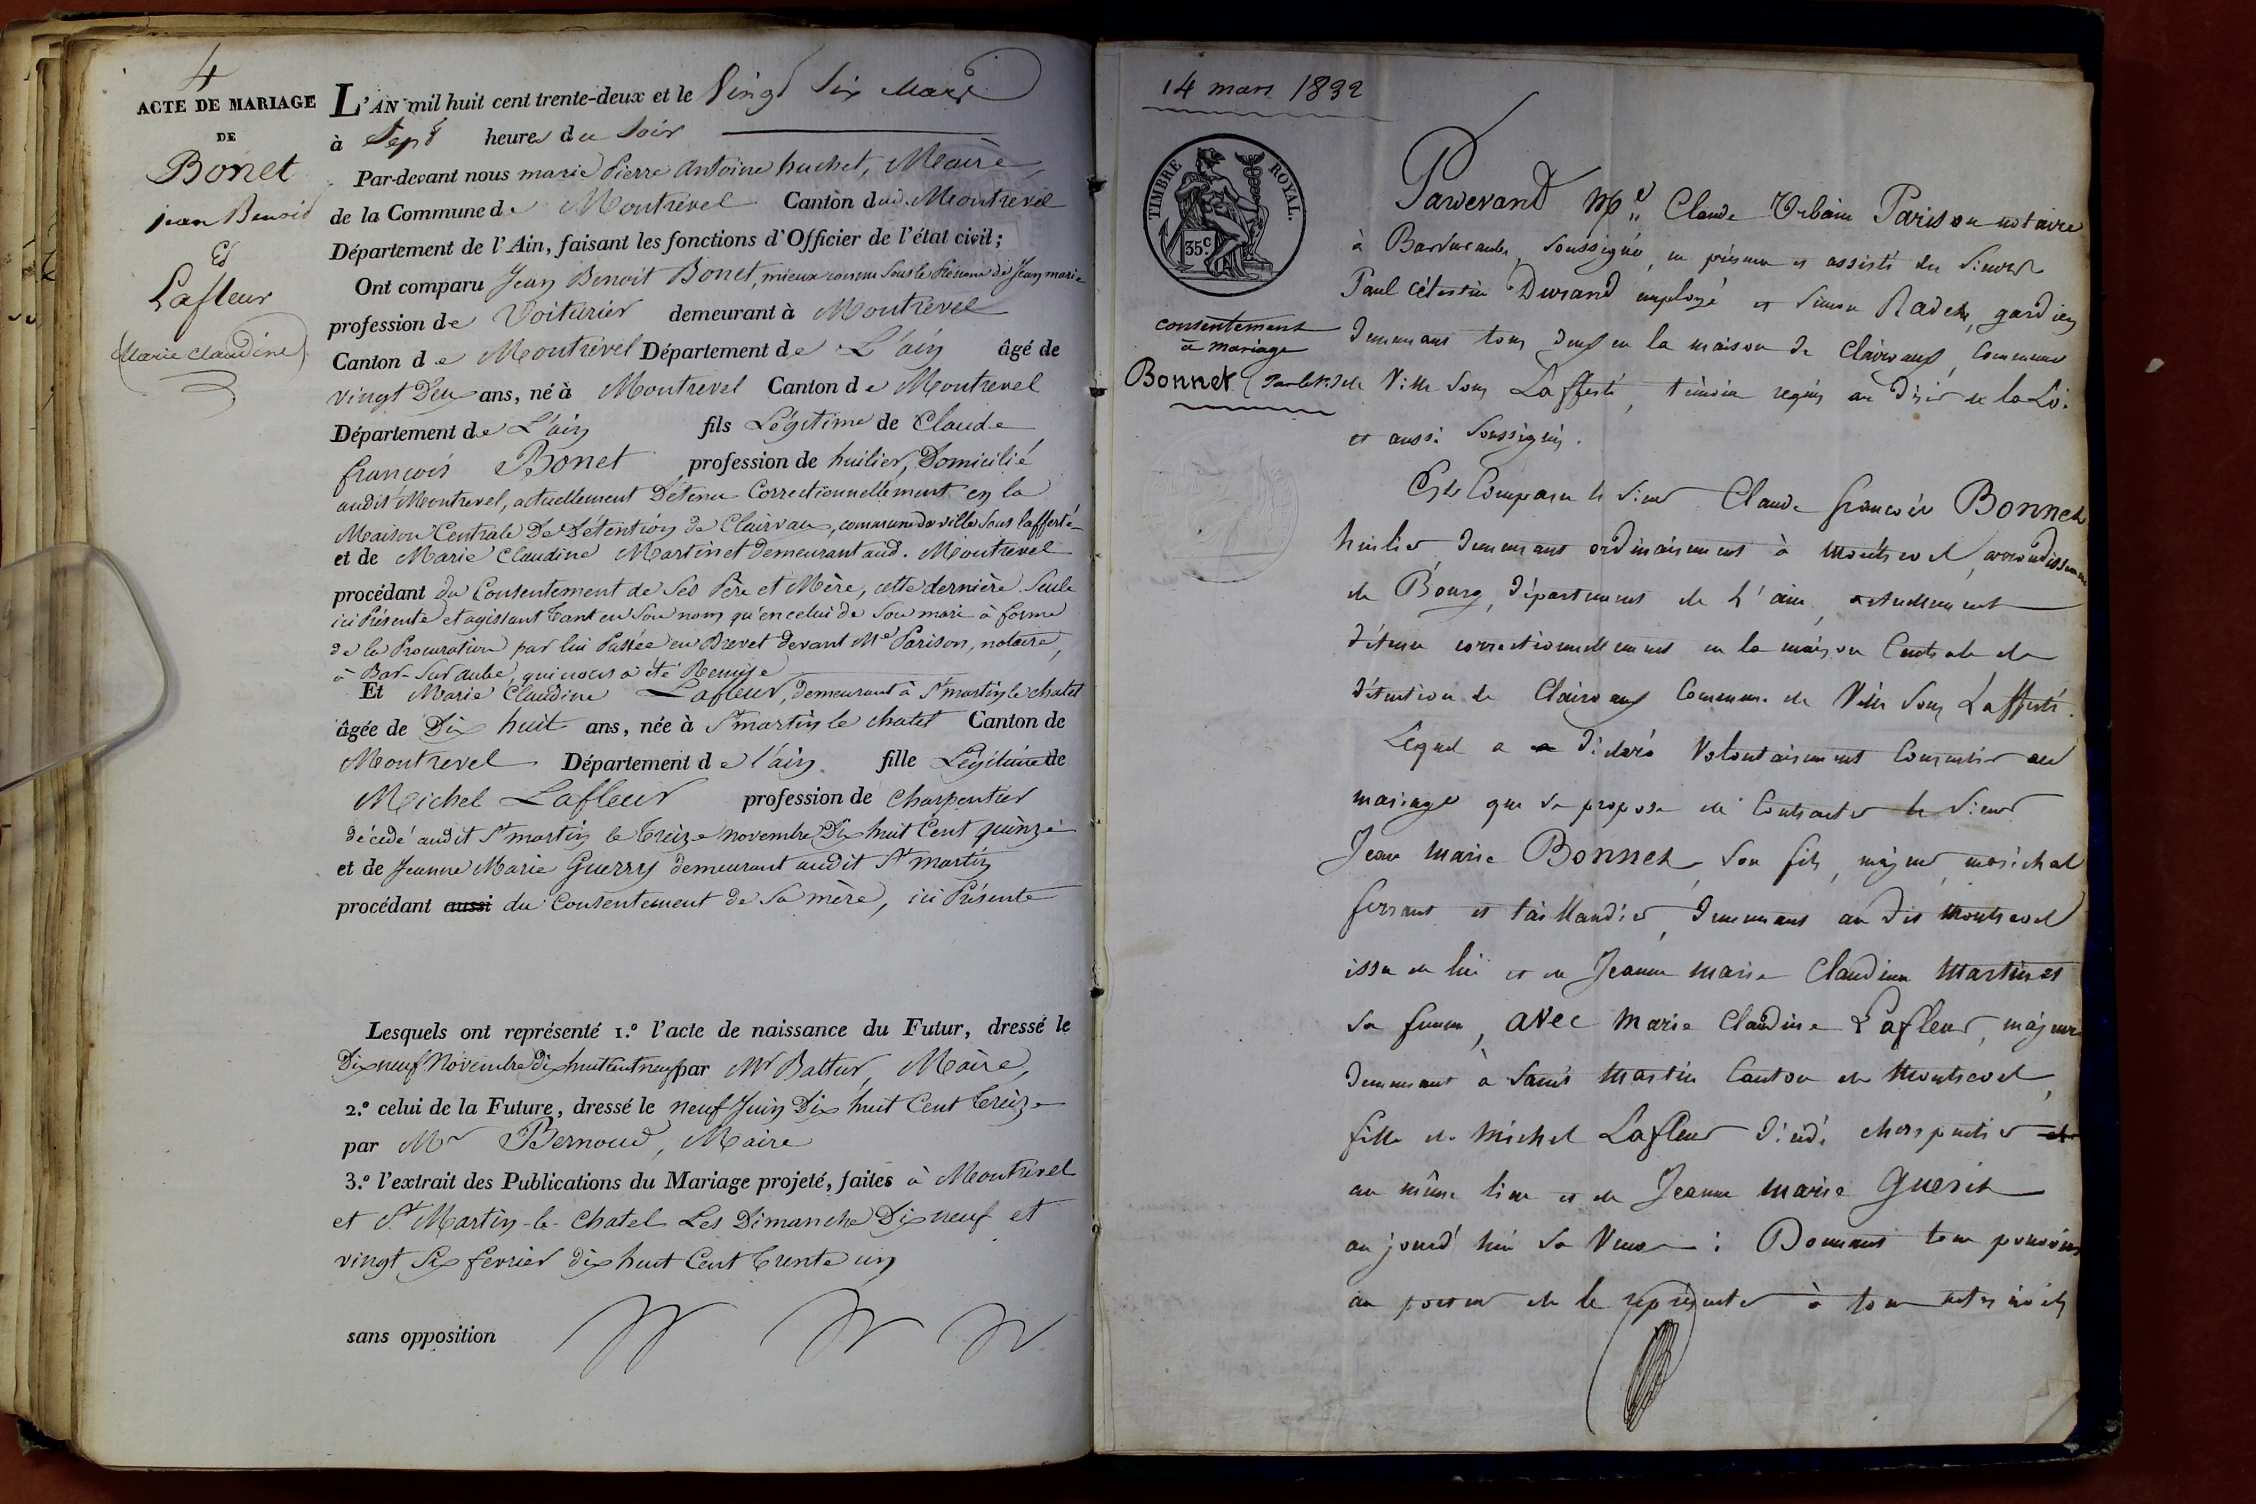 4
ACTE DE MARIAGE
DE
Bonet
jean Benoit
Et
Lafleur
(Marie Claudine)
L'AN mil huit cent trente-deux et le Vingt Six Mars
à Sept heures du Soir
Par-devant nous marie Pierre Antoine huchet, Maire
de la Commune de Montrevel Canton dud. Montrevel
Département de l'Ain, faisant les fonctions d'Officier de l'état civil;
Ont comparu Jean Benoit Bonet, mieux connu sous le Prénom de Jean marie
profession de Voiturier demeurant à Montrevel
Canton de Montrevel Département de L'ain âgé de
vingt Deux ans, né à Montrevel Canton de Montrevel
Département de L'ain fils Légitime de Claude
françois Bonet profession de huilier, Domicilié
audit Montrevel, actuellement Détenu Correctionnellement en la
Maison Centrale De Détention de Clairvaux, commune de ville sous lafferté
et de Marie Claudine Martinet demeurant aud. Montrevel
procédant du Consentement de Ses Père et Mère, cette dernière Seule
ici Présente et agissant tant en Son nom qu'en celui de Son mari à forme
de la Procuration par lui Passée en Brevet devant Me Parison, notaire,
à Bar-Sur aube, qui nous a été Remise
Et Marie Claudine Lafleur, demeurant à St martin le chatel
âgée de Dix huit ans, née à St martin le chatel Canton de
Montrevel Département de l'ain fille Légitime de
Michel Lafleur profession de Charpentier
décédé audit St martin le treize novembre Dix huit Cent quinze
et de Jeanne Marie Guerry demeurant audit St martin
procédant aussi du Consentement de Sa mère, ici Présente
Lesquels ont représenté 1.º l'acte de naissance du Futur, dressé le
Dix neuf Novembre Dix huit cent neuf par Mr Battur, Maire,
2.º celui de la Future, dressé le neuf Juin Dix huit Cent treize
par Mr Bernoud, Maire
3.º l'extrait des Publications du Mariage projeté, faites à Montrevel
et St Martin-le-Chatel Les Dimanche Dix neuf et
vingt Six fevrier dix huit Cent trente un
sans opposition
14 mars 1832
TIMBRE ROYAL.
35.c
consentement
à mariage
Bonnet
Pardevant Me Claude Urbain Parison notaire
à Barsuraube, soussigné, en présence et assisté des Sieurs
Paul Célestin Durand employé et Simon Radet, gardien
demeurant tous deux en la maison de Clairvaux, Commune
de Ville sous Lafferté, témoins requis au désir de la Loi
et aussi soussignés.
Est Comparu le Sieur Claude françois Bonnet
huilier, demeurant ordinairement à Montrevel, arrondissement
de Bourg, département de l'ain, actuellement
détenu correctionnellement en la maison Centrale de
détention de Clairvaux Commune de Ville sous Lafferté.
Lequel a déclaré volontairement Consentir au
mariage que se propose de Contracter le Sieur
Jean Marie Bonnet, son fils, majeur, maréchal
ferrant et taillandier, demeurant au dit Montrevel
issu de lui et de Jeanne Marie Claudine Martinet
sa femme, avec Marie Claudine Lafleur, majeure
demeurant à Saint Martin Canton de Montrevel,
fille de Michel Lafleur décédé charpentier
au même lieu et de Jeanne Marie Guerit
aujourd'hui sa Veuve : Donnant tous pouvoirs
au porteur de le représenter à tous actes